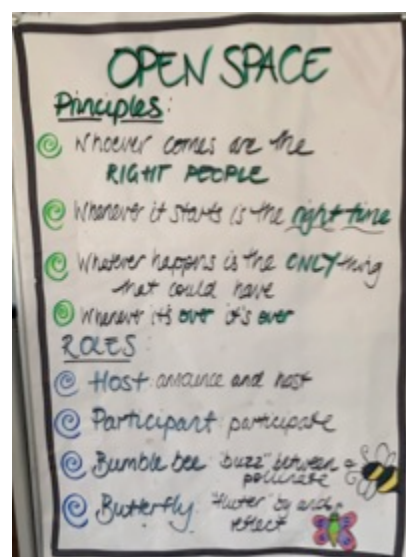 OPEN SPACE
Principles:
Whoever comes are the
RIGHT PEOPLE
Whenever it starts is the right time
Whatever happens is the ONLY thing
that could have
Whenever it's over it's over
ROLES:
Host: announce and host
Participant: participate
Bumble bee "buzz" between +
pollinate
Butterfly: "flutter" by and
reflect